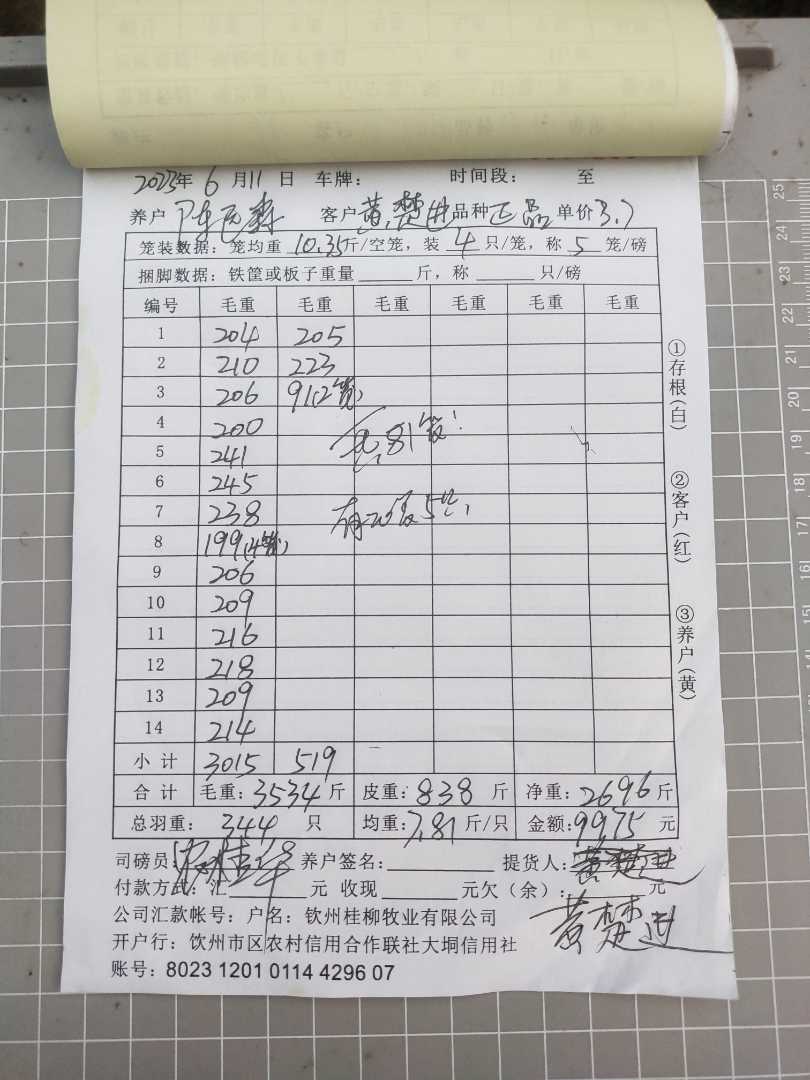 2023年 6 月 11 日 车牌: 时间段: 至
养户 客户 黄楚进 品种 正品 单价 3.7
笼装数据: 笼均重 10.35 斤/空笼, 装 4 只/笼, 称 5 笼/磅
捆脚数据: 铁筐或板子重量 斤, 称 只/磅
编号 毛重 毛重 毛重 毛重 毛重 毛重
1 204 205
2 210 223
3 206 91(2笼)
4 200
5 241
6 245
7 238
8 199(4笼)
9 206
10 209
11 216
12 218
13 209
14 214
81笼!
小计 3015 519
合计 毛重: 3534 斤 皮重: 838 斤 净重: 2696 斤
总羽重: 344 只 均重: 7.81 斤/只 金额: 9975 元
司磅员: 养户签名: 提货人: 黄楚进
付款方式: 汇 元 收现 元欠(余): 元
公司汇款帐号: 户名: 钦州桂柳牧业有限公司
黄楚进
开户行: 饮州市区农村信用合作联社大垌信用社
账号: 8023 1201 0114 4296 07
①存根(白)
②客户(红)
③养户(黄)
25
24
23
22
21
20
19
18
17
16
15